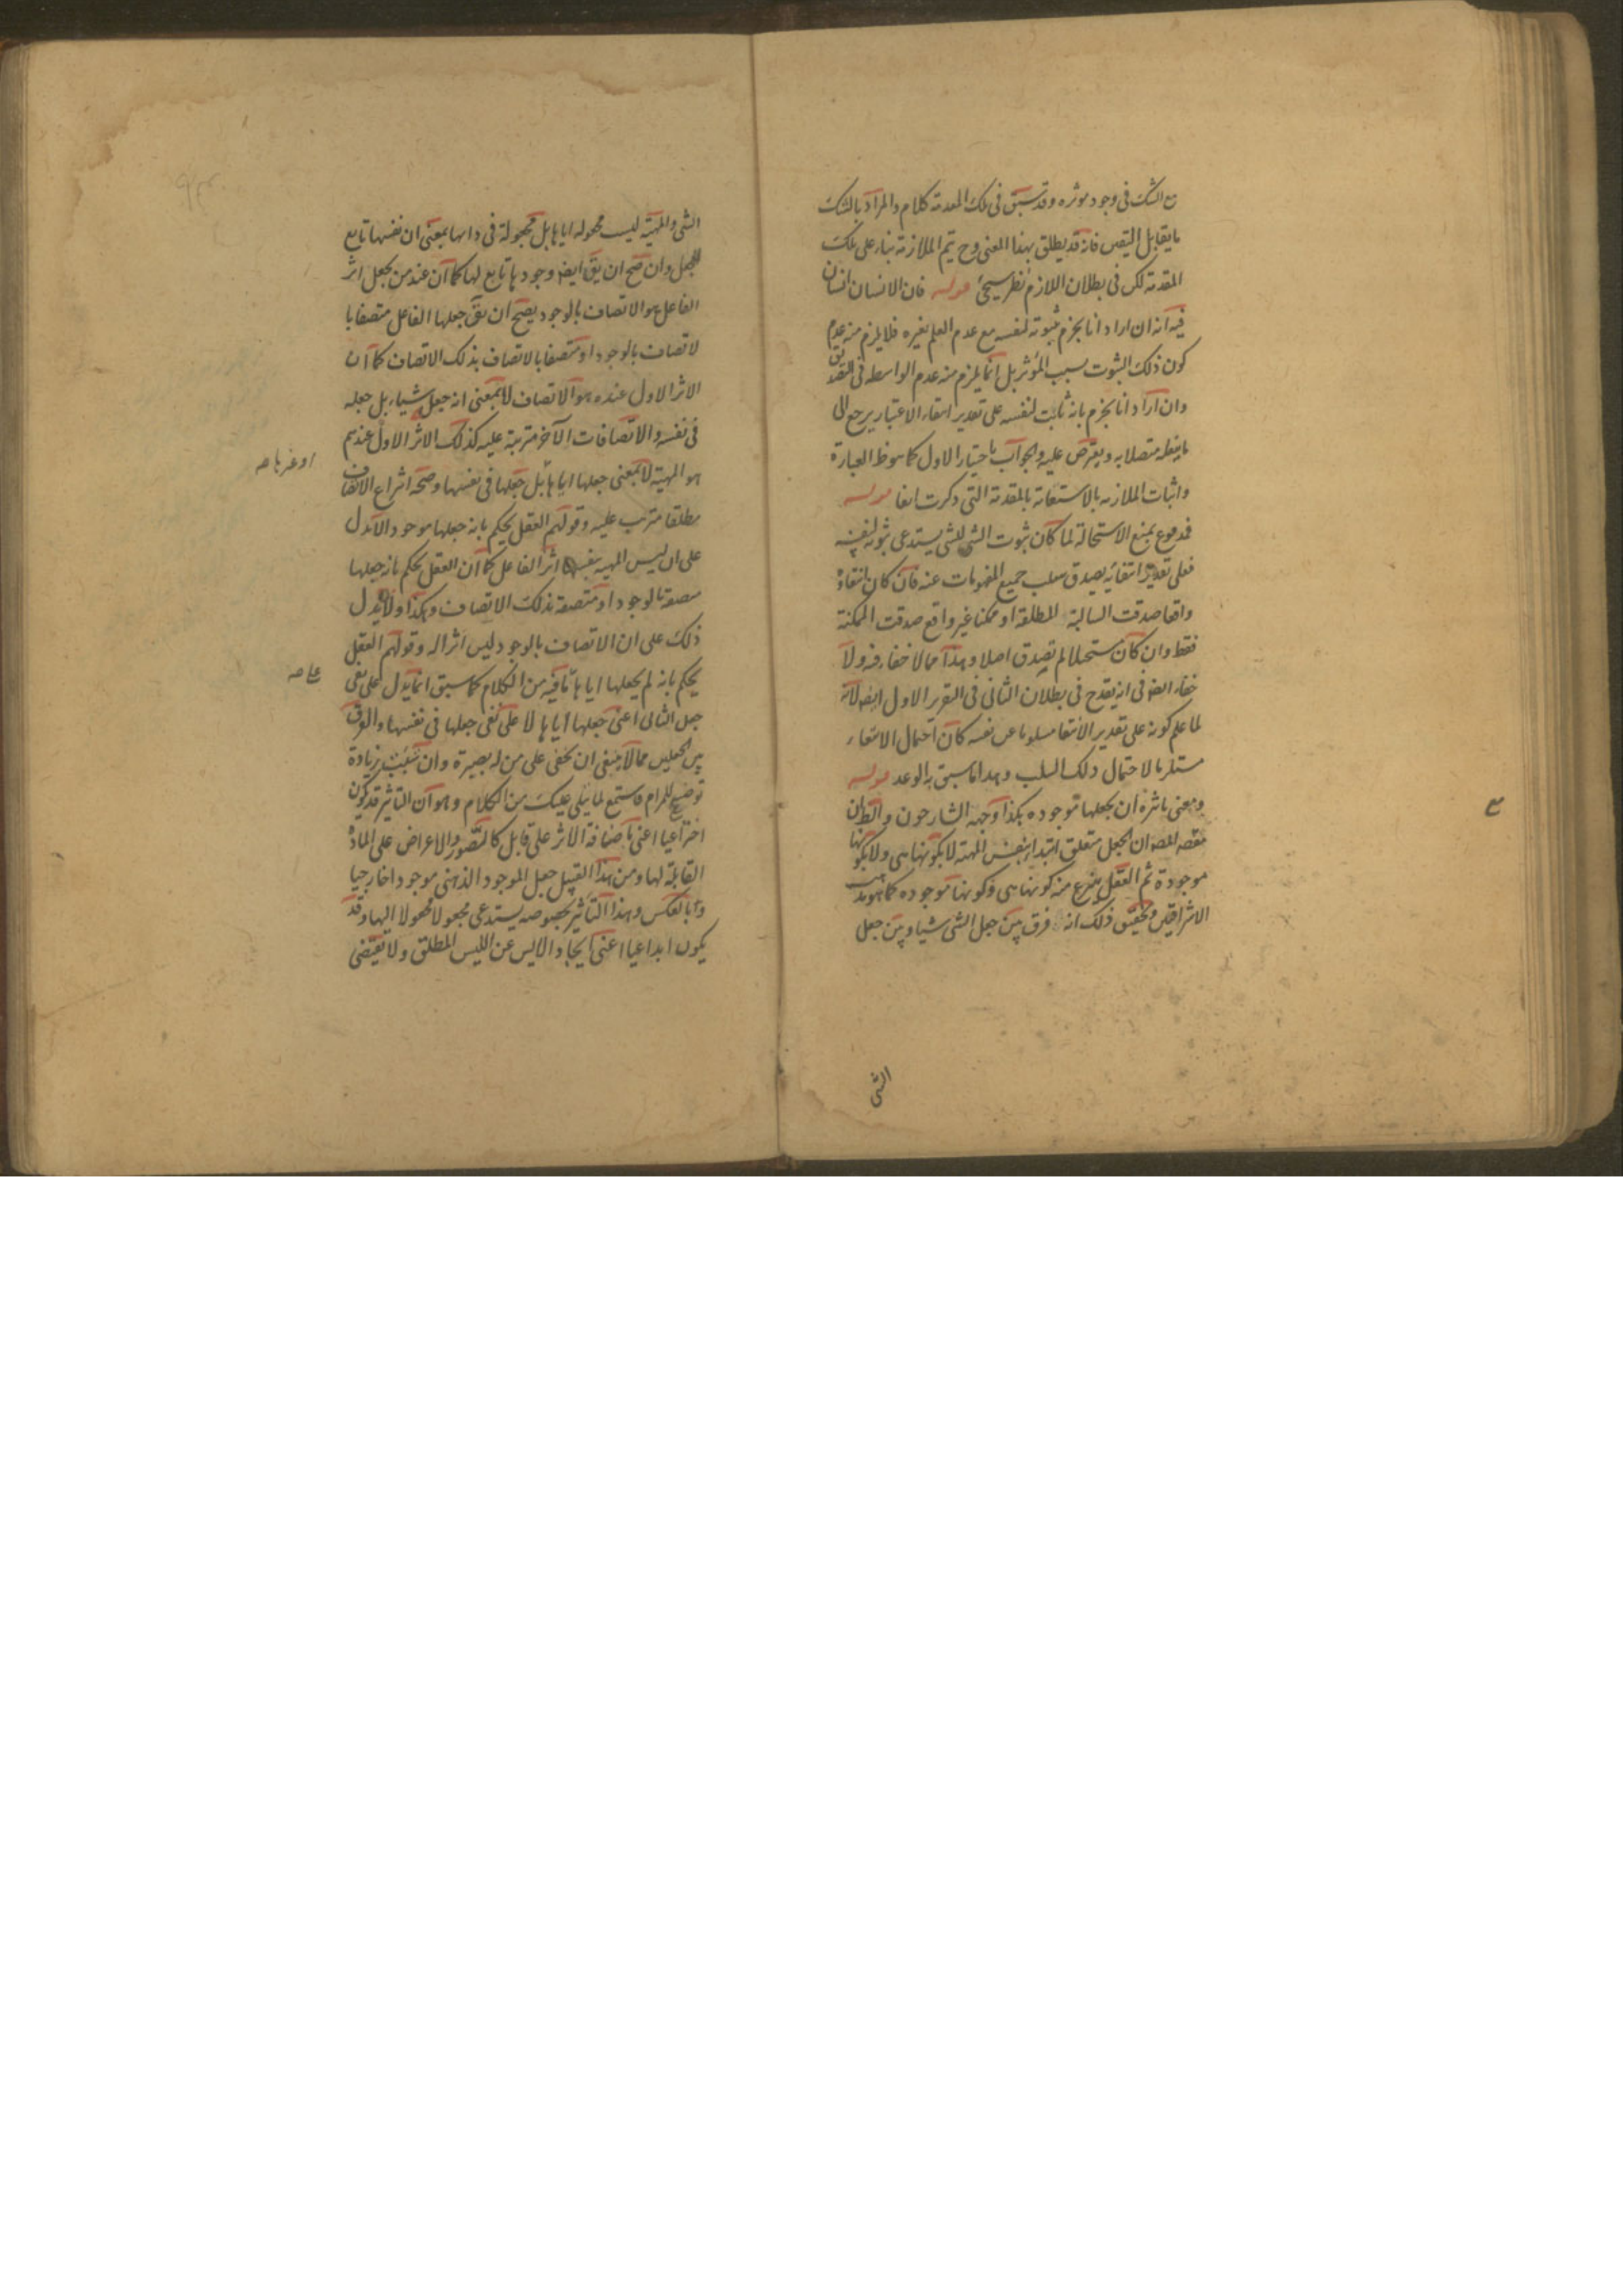 مع الشك فى وجود موثره وقد سبق فى تلك المقدمة كلام والمراد بالشك
ما يقابل اليقين فانه قد يطلق بهذا المعنى وح يتم الملازمة بناء على تلك
المقدمة لكن فى بطلان اللازم نظر سيجئ قوله فان الانسان انسان
فيه انه ان اراد انا نجزم بثبوته لنفسه مع عدم العلم بغيره فلا يلزم منه عدم
كون ذلك الثبوت بسبب المؤثر بل انما يلزم منه عدم الواسطه فى التصديق
وان اراد انا نجزم بانه ثابت لنفسه على تقدير انتفاء الاعتبار يرجع الى
ما ينقله متصلا به ويعترض عليه والجواب باختيار الاول كما هو ظ العبارة
واثبات الملازمه بالاستعانة بالمقدمة التى ذكرت انفا قوله
فمدفوع بمنع الاستحالة لما كان ثبوت الشى للشى يستدعى ثبوته لنفسه
فعلى تقدير انتفائه يصدق سلب جميع المفهومات عنه فان كان انتفاؤه
واقعا صدقت السالبة المطلقة او ممكنا غير واقع صدقت الممكنة
فقط وان كان مستحيلا لم تصدق اصلا وهذا مما لا خفاء فيه ولا
خفاء ايضا فى انه يقدح فى بطلان الثانى فى التقرير الاول ايضا لانه
لما علم كونه على تقدير الانتفا مسلوبا عن نفسه كان احتمال الانتفاء
مستلزما لاحتمال ذلك السلب وهذا ما سبق به الوعد قوله
ومعنى تاثيره ان يجعلها موجوده هكذا وجهه الشارحون والظ ان
مقصد المص ان الجعل متعلق ابتداء بنفس المهية لا بكونها هى ولا بكونها
موجودة ثم العقل ينتزع منه كونها هى وكونها موجوده كما هو مذهب
الاشراقيين وتحقيق ذلك انه فرق بين جعل الشى شيا وبين جعل
الشى
الشى والمهية ليست مجعولة اياها بل مجعولة فى ذاتها بمعنى ان نفسها تابع
للجعل وان صح ان يق ايضا وجودها تابع لها كما ان عند من يجعل اثر
الفاعل هو الاتصاف بالوجود يصح ان يق جعلها الفاعل متصفا با
لاتصاف بالوجود او متصفا بالاتصاف بذلك الاتصاف كما ان
الاثر الاول عنده هو الاتصاف لا بمعنى انه جعل شياء بل جعله
فى نفسه والاتصافات الآخر مترتبة عليه كذلك الاثر الاول عندهم
هو المهية لا بمعنى جعلها اياها بل جعلها فى نفسها وصحة انتزاع الاتصاف
مطلقا مترتب عليه وقولهم العقل يحكم بانه جعلها موجود الا تدل
على ان ليس المهيه بنفسها اثر الفاعل كما ان العقل يحكم بانه جعلها
متصفة بالوجود او متصفة بذلك الاتصاف وهكذا ولا يدل
ذلك على ان الاتصاف بالوجود ليس اثرا له وقولهم العقل
يحكم بانه لم يجعلها اياها نافية من الكلام كما سبق انما يدل على نفى
جعل الثانى اعنى جعلها اياها لا على نفى جعلها فى نفسها والفرق
بين الجعلين مما لا ينبغى ان يخفى على من له بصيرة وان شئت زيادة
توضيح للمرام فاستمع لما يتلى عليك من الكلام وهو ان التاثير قد يكون
اختراعيا اعنى باضافة الاثر على قابل كالتصور والاعراض على المادة
القابلة لها ومن هذا القبيل جعل الموجود الذهنى موجودا خارجيا
وبالعكس وهذا التاثير بخصوصه يستدعى مجعولا مجعولا اليها وقد
يكون ابداعيا اعنى ايجاد الايس عن الليس المطلق ولا يقتضى